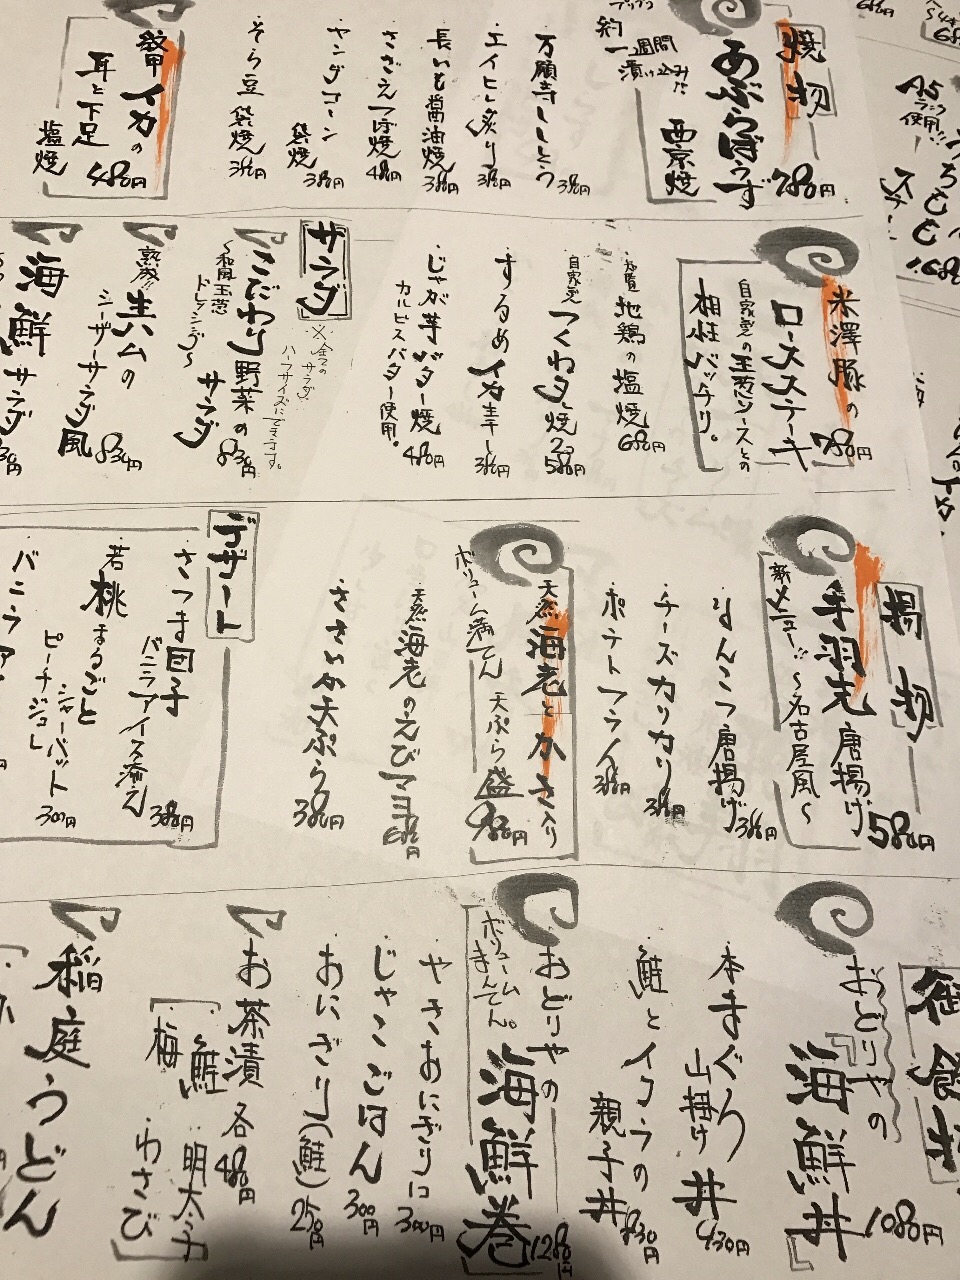 焼物
あぶらぼうず
西京焼
780円
約一週間
漬け込み!!
万願寺ししとう
380円
エイヒレ炙り
380円
長いも醤油焼
380円
さざえつぼ焼
480円
ヤングコーン
袋焼
380円
そら豆 袋焼
380円
イカの
耳と下足
塩焼
480円
A5
ランク
使用!!
米澤豚の
ロースステーキ
自家製の玉葱ソースとの
相性バッチリ。
780円
地鶏の塩焼
680円
自家製
つくね焼
2コ
580円
するめイカ
380円
じゃが芋バター焼
カルピスバター使用。
480円
サラダ
※全ての
サラダ
ハーフサイズにできます。
こだわり野菜の
サラダ
〜和風玉葱
ドレッシング〜
830円
熟成!!生ハムの
シーザーサラダ風
830円
海鮮サラダ
揚物
手羽先唐揚げ
新メニュー!!〜名古屋風〜
580円
なんこつ唐揚げ
380円
チーズカリカリ
380円
ポテトフライ
380円
天然海老と
入り
天ぷら盛
ボリューム満てん
980円
天然海老のえびマヨ
680円
天ぷら
380円
デザート
さつま団子
バニラアイス添え
380円
若桃まるごと
シャーベット
ピーチジュレ
300円
バニラア
御食事
おどりやの
海鮮丼
1080円
本まぐろ
山掛け丼
430円
鮭とイクラの
親子丼
830円
おどりやの
海鮮巻
ボリューム
まんてん。
1280円
やきおにぎり
300円
じゃこごはん
300円
おにぎり(鮭)
250円
お茶漬 各480円
鮭 明太子
梅 わさび
稲庭うどん